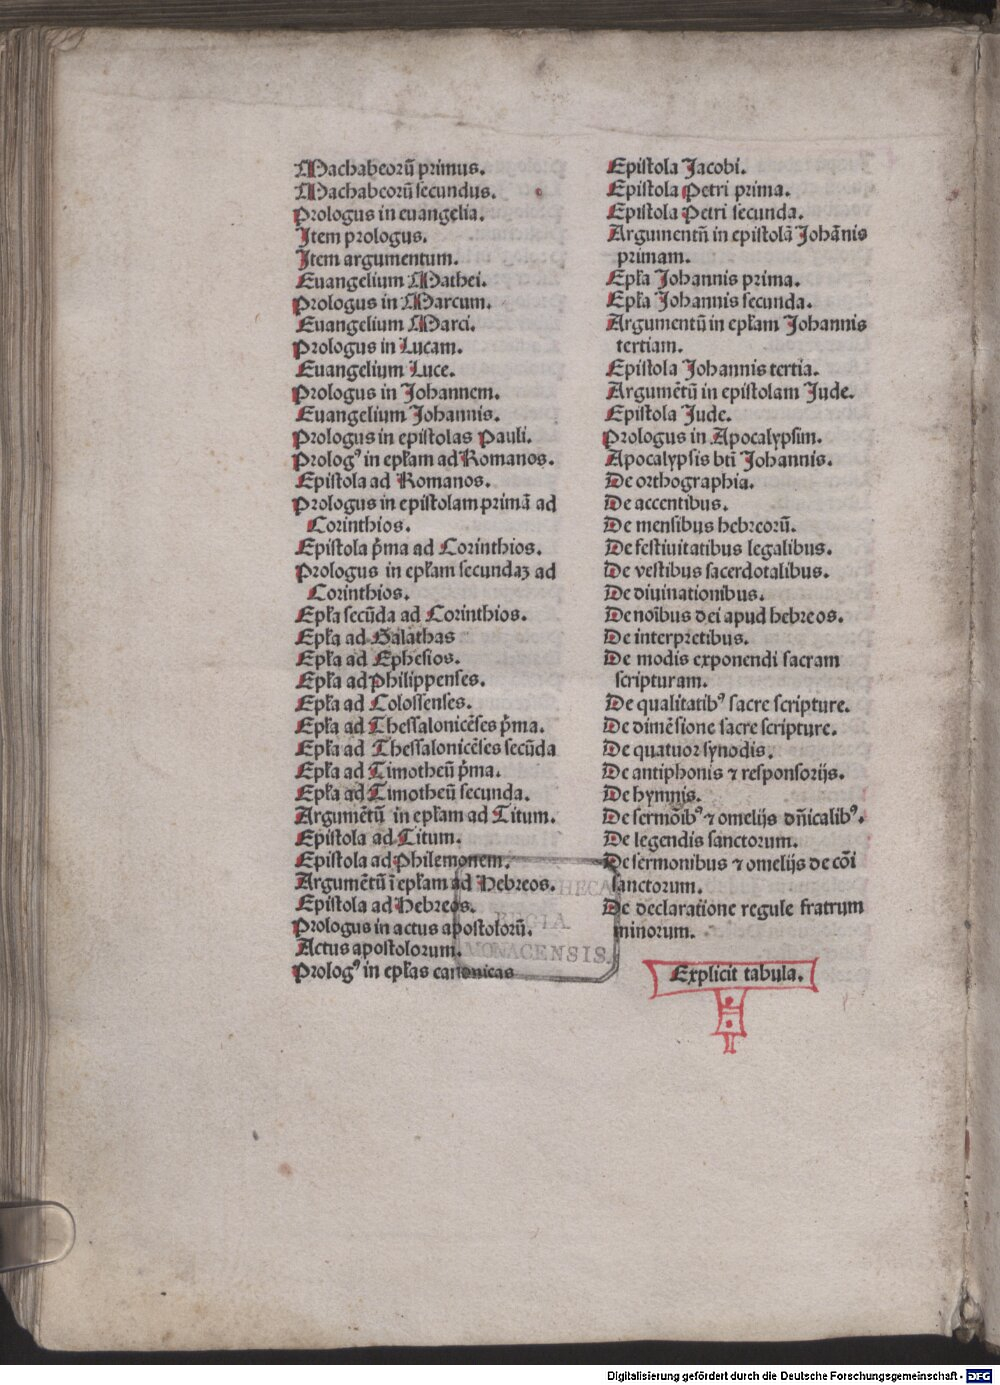 Machabeorū primus.
Machabeorū secundus.
Prologus in euangelia.
Item prologus.
Item argumentum.
Euangelium Mathei.
Prologus in Marcum.
Euangelium Marci.
Prologus in Lucam.
Euangelium Luce.
Prologus in Johannem.
Euangelium Johannis.
Prologus in epistolas Pauli.
Prologꝰ in ep̄l̄am ad Romanos.
Epistola ad Romanos.
Prologus in epistolam primā ad
Corinthios.
Epistola p̄ma ad Corinthios.
Prologus in ep̄l̄am secundaꝫ ad
Corinthios.
Ep̄l̄a secūda ad Corinthios.
Ep̄l̄a ad Galathas
Ep̄l̄a ad Ephesios.
Ep̄l̄a ad Philippenses.
Ep̄l̄a ad Colossenses.
Ep̄l̄a ad Thessalonicēses p̄ma.
Ep̄l̄a ad Thessalonicēses secūda
Ep̄l̄a ad Timotheū p̄ma.
Ep̄l̄a ad Timotheū secunda.
Argumētū in ep̄l̄am ad Titum.
Epistola ad Titum.
Epistola ad Philemonem.
Argumētū ī ep̄l̄am ad Hebreos.
Epistola ad Hebreos.
Prologus in actus apostolorū.
Actus apostolorum.
Prologꝰ in ep̄l̄as canonicas
Epistola Jacobi.
Epistola Petri prima.
Epistola Petri secunda.
Argumentū in epistolā Johānis
primam.
Ep̄l̄a Johannis prima.
Ep̄l̄a Johannis secunda.
Argumentū in ep̄l̄am Johannis
tertiam.
Epistola Johannis tertia.
Argumētū in epistolam Jude.
Epistola Jude.
Prologus in Apocalypsim.
Apocalypsis bt̄i Johannis.
De orthographia.
De accentibus.
De mensibus hebreorū.
De festiuitatibus legalibus.
De vestibus sacerdotalibus.
De diuinationibus.
De noībus dei apud hebreos.
De interpretibus.
De modis exponendi sacram
scripturam.
De qualitatibꝰ sacre scripture.
De dimēsione sacre scripture.
De quatuor synodis.
De antiphonis ⁊ responsorijs.
De hymnis.
De sermōibꝰ ⁊ omelijs dn̄icalibꝰ.
De legendis sanctorum.
De sermonibus ⁊ omelijs de cōi
sanctorum.
De declaratione regule fratrum
minorum.
Explicit tabula.
REGIA
MONACENSIS.
Digitalisierung gefördert durch die Deutsche Forschungsgemeinschaft - DFG